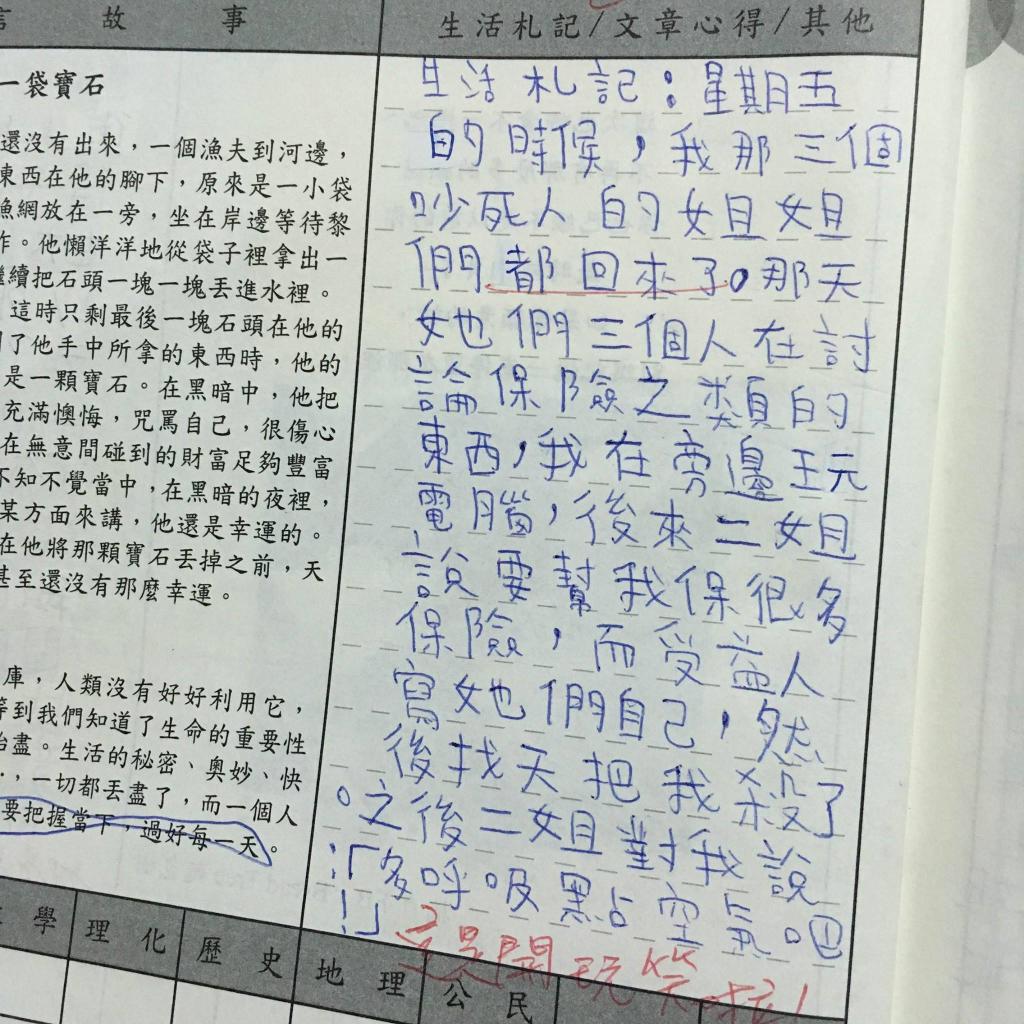 言故事
生活札記/文章心得/其他
一袋寶石
還沒有出來，一個漁夫到河邊，
東西在他的腳下，原來是一小袋
漁網放在一旁，坐在岸邊等待黎
作。他懶洋洋地從袋子裡拿出一
繼續把石頭一塊一塊丟進水裡。
這時只剩最後一塊石頭在他的
了他手中所拿的東西時，他的
是一顆寶石。在黑暗中，他把
充滿懊悔，咒罵自己，很傷心
在無意間碰到的財富足夠豐富
不知不覺當中，在黑暗的夜裡，
某方面來講，他還是幸運的。
在他將那顆寶石丟掉之前，天
甚至還沒有那麼幸運。
庫，人類沒有好好利用它，
等到我們知道了生命的重要性
殆盡。生活的秘密、奧妙、快
，一切都丟盡了，而一個人
要把握當下，過好每一天。
生活札記：星期五
的時候，我那三個
吵死人的姐姐
們都回來了。那天
她們三個人在討
論保險之類的
東西，我在旁邊玩
電腦，後來二姐
說要幫我保很多
保險，而受益人
寫她們自己，然
後找天把我殺了
。之後二姐對我說
：「多呼吸點空氣吧
！」
這是開玩笑啦！
學 理化 歷史 地理 公民